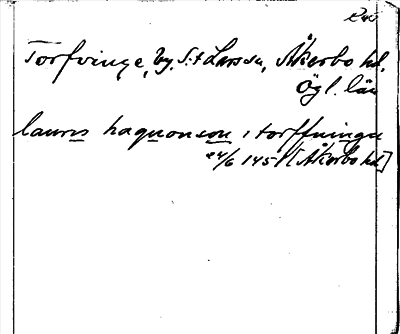 Torfvinge, by, S:t Lars sn, Åkerbo hd,
Ögl. län
lauris haquonson i torffningu
24/6 145 [Åkerbo hd]